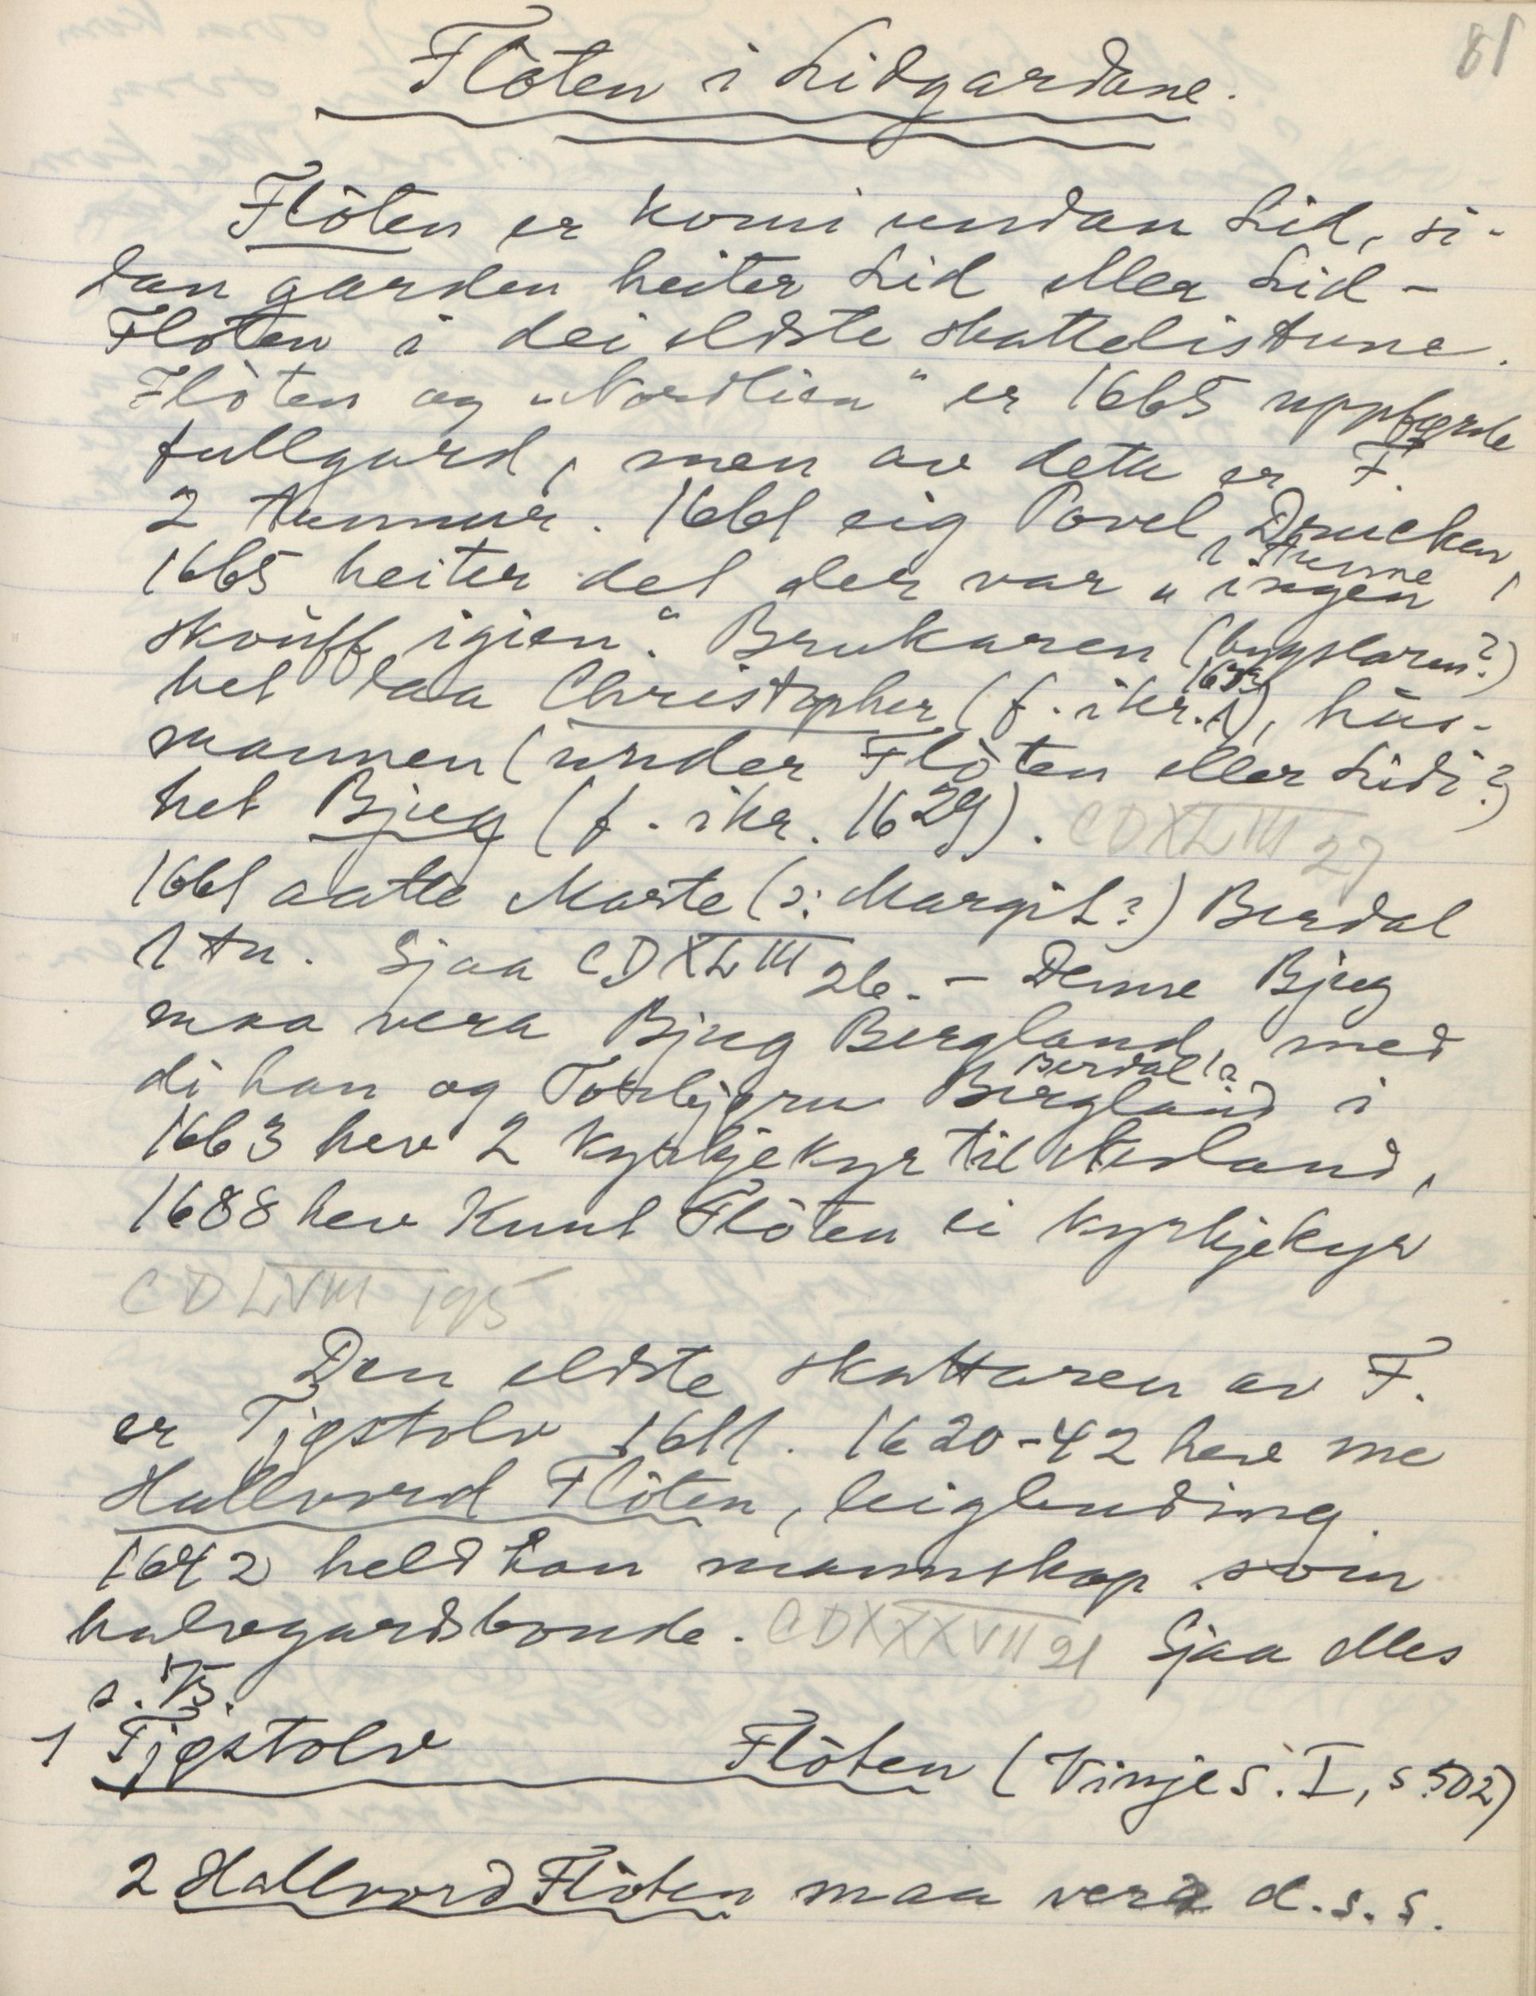 81
Flòten i Lidgardane.
Flòten er komi undan Lid, si-
dan garden heiter Lid eller Lid-
Floten i dei eldste skattelistune.
Flòten og „Nordlien" er 1665 uppførde
fullgard, men av detta er F.
2 tunnur. 1661 eig Povel Drucken
1 tunne,
1665 heiter det der var „ingen
skouff igien". Brukaren (bygslaren?)
het daa Christopher (f. ikr. 1631), hus-
mannen (under Flòten eller Lid?)
het Bjug (f. ikr. 1629). CDXLIII 27
1661 aatte Marte (ɔ: Margit?) Berdal
1 tn. Sjaa CDXLIII 26. - Denne Bjug
maa vera Bjug Bergland, med
Berdal?
di han og Torbjørn Bergland i
1663 hev 2 kyrkjekyr til Nesland,
1688 hev Knut Flòten ei kyrkjekyr
CDLVIII 195
Den eldste skattaren av F.
er Tjøstolv 1611. 1620-42 hev me
Hallvord Flòten, leiglending.
1642 held han mannskap som
halvgardsbonde. CDXXXVII 21 Sjaa elles
s. 75.
1 Tjøstolv Flòten (Vinje s. I, s 502)
2 Hallvord Flòten maa vera d.s.s.